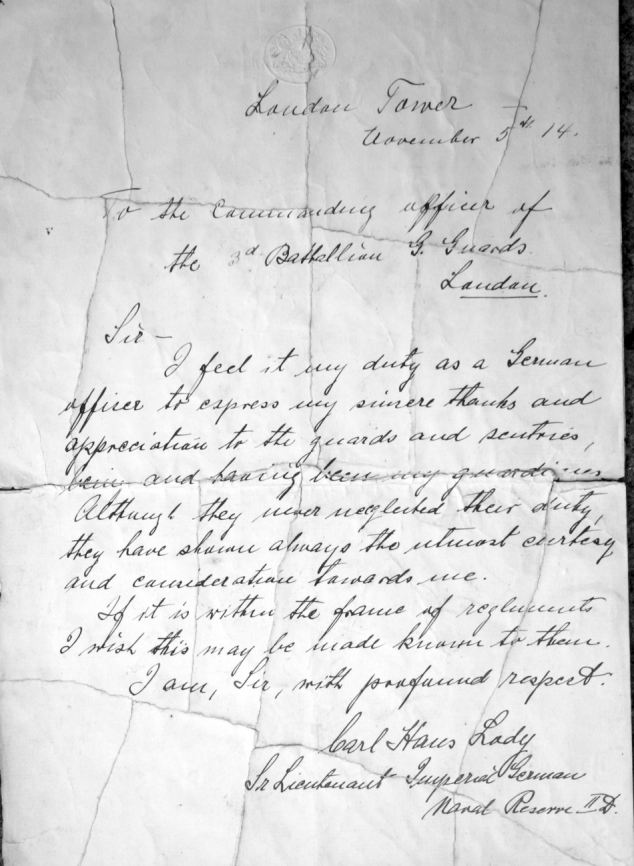 London Tower -
November 5th 14.
To the Commanding officer of
the 3d Battallion G. Guards.
London.
Sir -
I feel it my duty as a German
officer to express my sincere thanks and
appreciation to the guards and sentries,
and having been my guardi
Although they never neglected their duty,
they have shown always the utmost curtesy
and consideration towards me.
If it is within the frame of reglments
I wish this may be made known to them.
I am, Sir, with profound respect.
Carl Hans Lody
Sr Lieutenant Imperial German
Naval Reserve II D.